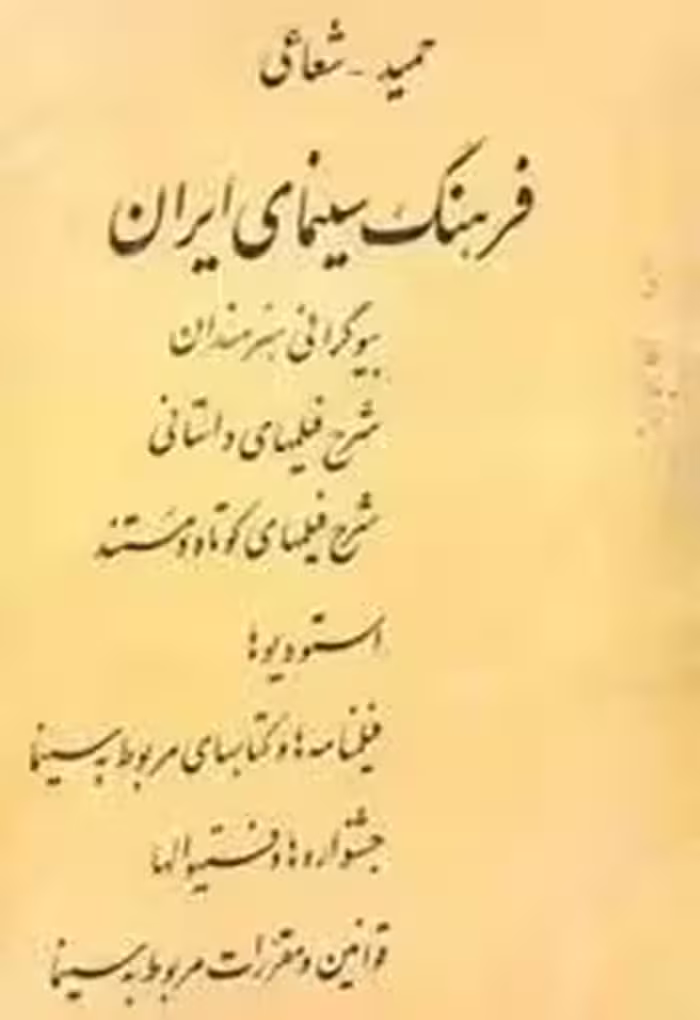 حمید - شعاعی
فرهنگ سینمای ایران
بیوگرافی هنرمندان
شرح فیلمهای داستانی
شرح فیلمهای کوتاه و مستند
استودیوها
فیلمنامه‌ها و کتابهای مربوط به سینما
جشنواره‌ها و فستیوالها
قوانین و مقررات مربوط به سینما